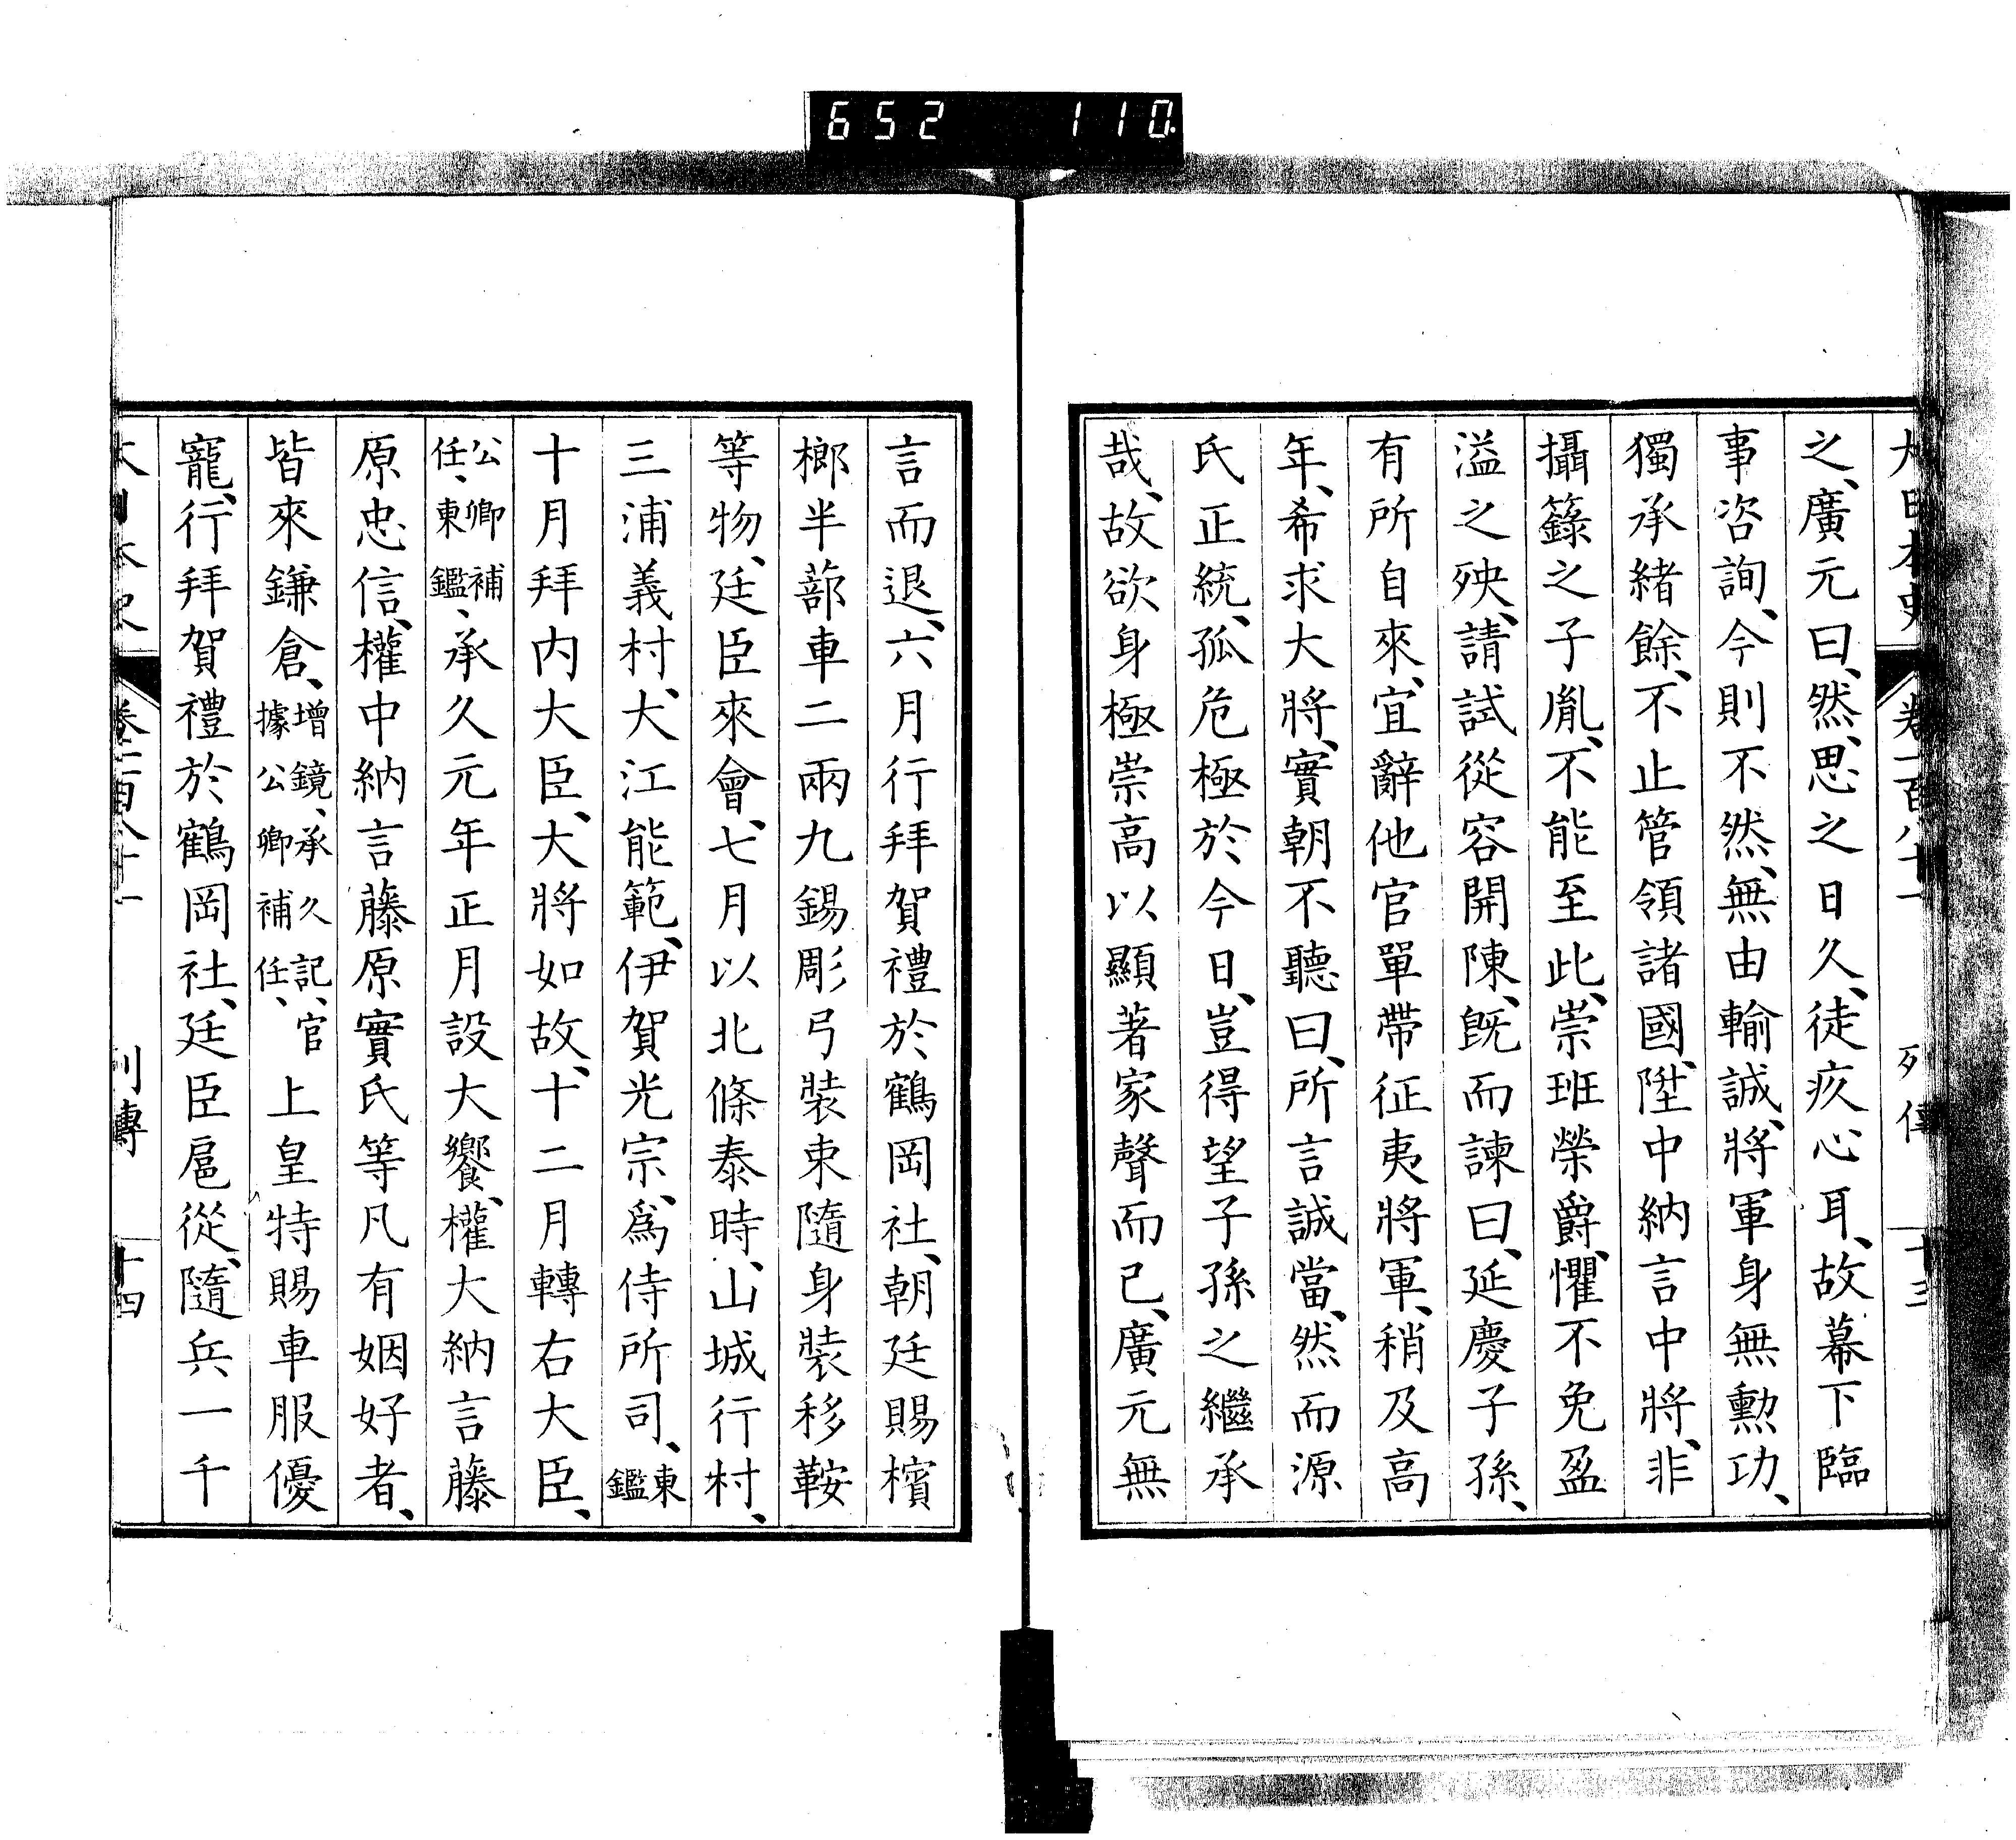 652 110
大日本史 卷一百八十一 列傳 十三
之、廣元曰、然、思之日久、徒疚心耳、故幕下臨
事咨詢、今則不然、無由輸誠、將軍身無勲功、
獨承緒餘、不止管領諸國、陞中納言中將、非
攝籙之子胤、不能至此、崇班榮爵、懼不免盈
溢之殃、請試從容開陳、既而諫曰、延慶子孫、
有所自來、宜辭他官單帶征夷將軍、稍及高
年、希求大將、實朝不聽曰、所言誠當、然而源
氏正統、孤危極於今日、豈得望子孫之繼承
哉、故欲身極崇高以顯著家聲而已、廣元無
言而退、六月行拜賀禮於鶴岡社、朝廷賜檳
榔半蔀車二兩九錫彫弓裝束隨身裝移鞍
等物、廷臣來會、七月以北條泰時、山城行村、
三浦義村、大江能範、伊賀光宗、爲侍所司、東鑑
十月拜内大臣、大將如故、十二月轉右大臣、
公卿補任、東鑑、承久元年正月設大饗、權大納言藤
原忠信、權中納言藤原實氏等凡有姻好者、
皆來鎌倉、增鏡、承久記、官據公卿補任、上皇特賜車服優
寵、行拜賀禮於鶴岡社、廷臣扈從、隨兵一千
大日本史 卷一百八十一 列傳 十四